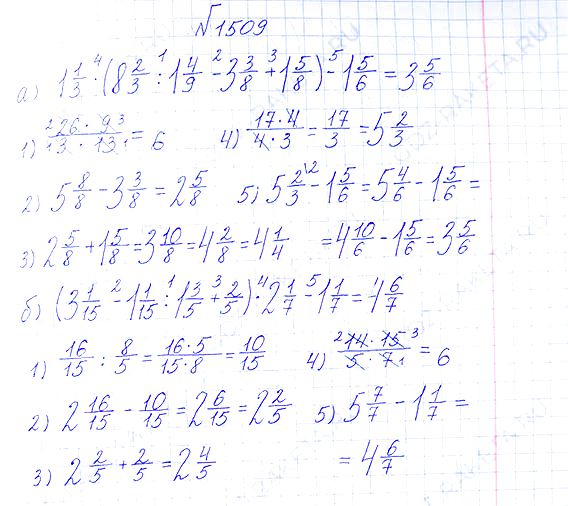 №1509
а) 1 1/3 ·⁴ (8 2/3 :¹ 1 4/9 -² 3 3/8 +³ 1 5/8) -⁵ 1 5/6 = 3 5/6
1) ²26 · 9³ / 13 · 13₁ = 6   4) 17·4 / 4·3 = 17/3 = 5 2/3
2) 5 8/8 - 3 3/8 = 2 5/8   5) 5 2/3 \2 - 1 5/6 = 5 4/6 - 1 5/6 =
3) 2 5/8 + 1 5/8 = 3 10/8 = 4 2/8 = 4 1/4   = 4 10/6 - 1 5/6 = 3 5/6
б) (3 1/15 -² 1 1/15 :¹ 1 3/5 +³ 2/5) ·⁴ 2 1/7 -⁵ 1 1/7 = 4 6/7
1) 16/15 : 8/5 = 16·5 / 15·8 = 10/15   4) ²14 · 15³ / 5 · 7₁ = 6
2) 2 16/15 - 10/15 = 2 6/15 = 2 2/5   5) 5 7/7 - 1 1/7 =
3) 2 2/5 + 2/5 = 2 4/5   = 4 6/7